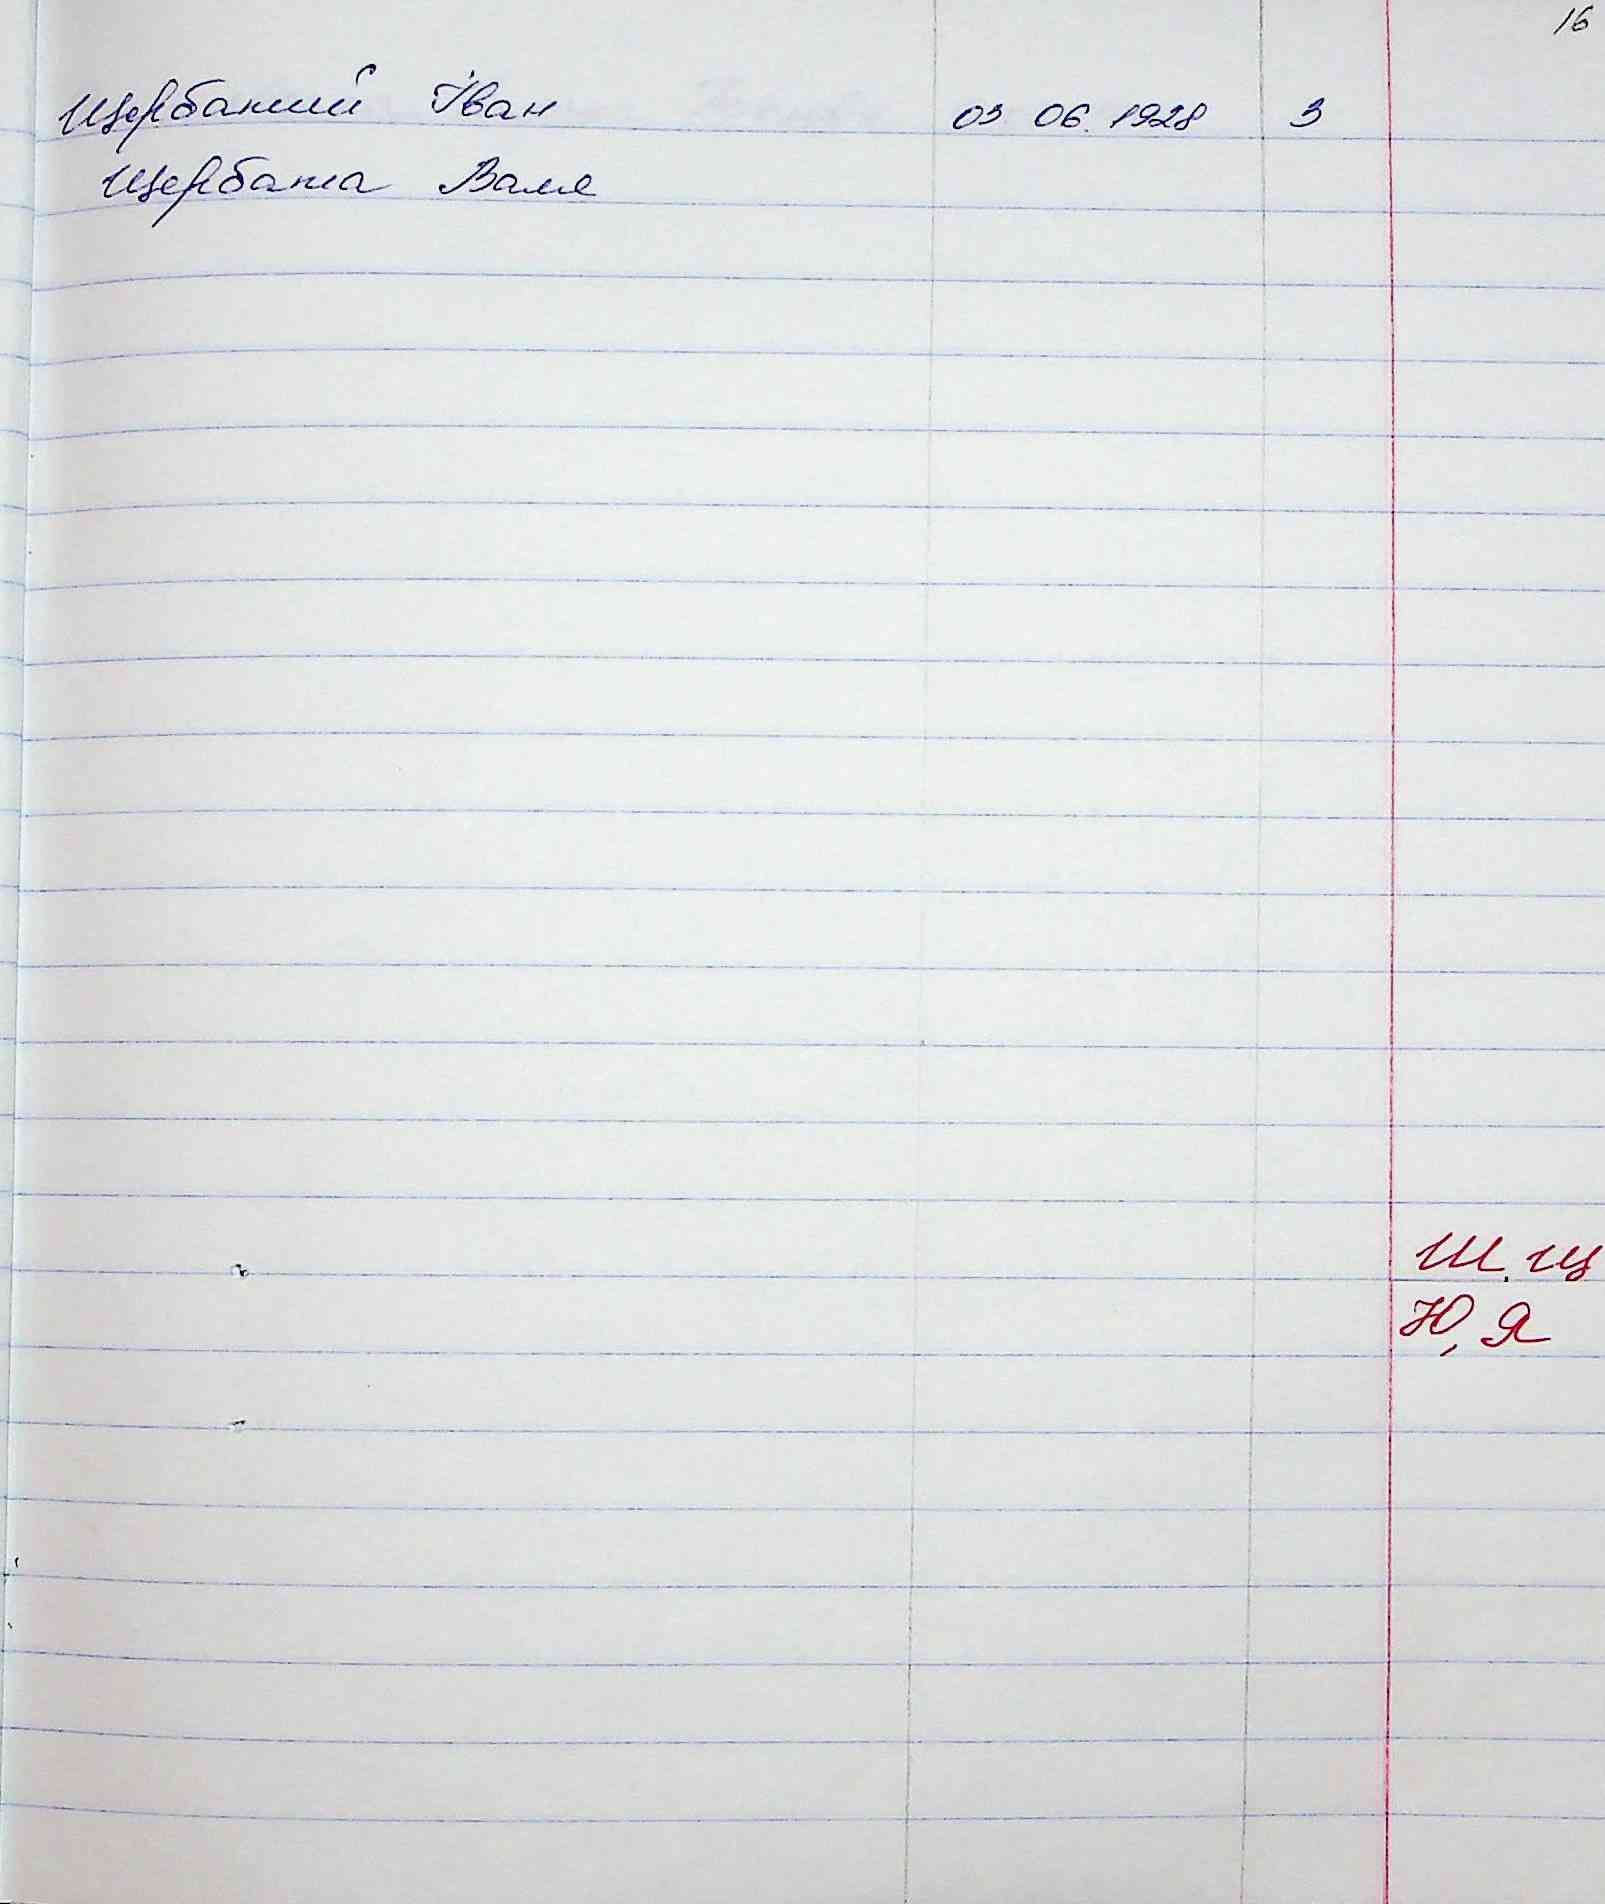 16
Щербатий Іван 03 06. 1928 3
Щербата Валя
Ш, Щ
Ю, Я